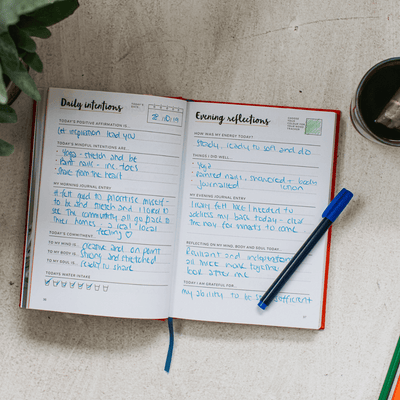 Daily intentions
TODAY'S DATE
TODAY'S POSITIVE AFFIRMATION IS...
Let inspiration lead you
TODAY'S MINDFUL INTENTIONS ARE...
• Yoga - stretch and be
• Paint nails - inc. toes
• Share from the heart
MY MORNING JOURNAL ENTRY
It felt good to prioritise myself -
to be and stretch and
see the community all go back to
their homes - a real local
feeling
TODAY'S COMMITMENT...
TO MY MIND IS... creative and on point
TO MY BODY IS... strong and stretched
TO MY SOUL IS... ready to share
TODAY'S WATER INTAKE
Evening reflections
HOW WAS MY ENERGY TODAY?
steady, ready to roll and do
THINGS I DID WELL...
• Yoga
• painted nails, showered + body
• journalled
MY EVENING JOURNAL ENTRY
I really felt like I needed to
address my back today - clear
the way for what's to come
REFLECTING ON MY MIND, BODY AND SOUL TODAY...
Resilient and independent
all three work together
look after me
TODAY I AM GRATEFUL FOR...
my ability to be self sufficient